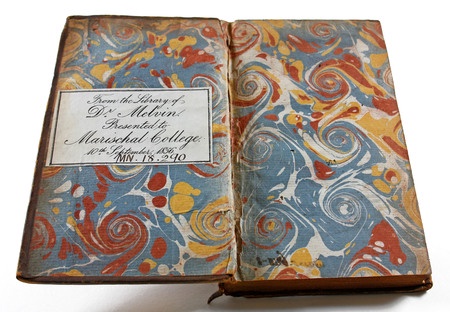 From the Library of
Dr. Melvin
Presented to
Marischal College.
10th September, 1856
MN. 18. 290